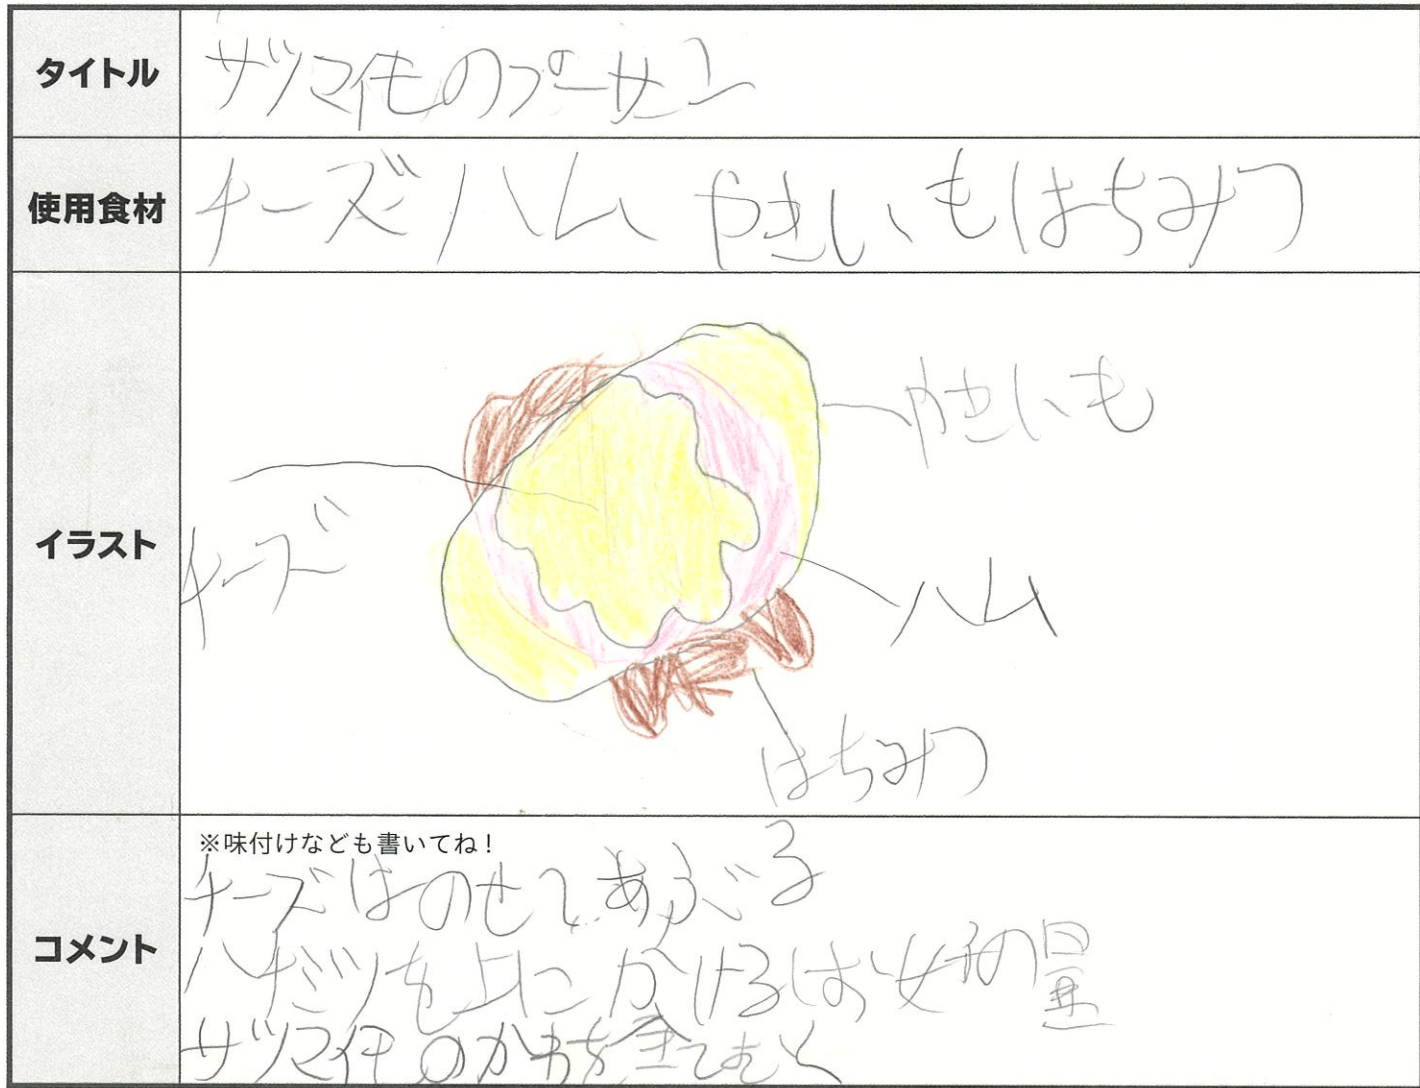 タイトル
ザツマ芋のプーサン
使用食材
チーズ ハム やきいも はちみつ
イラスト
やきいも
チーズ
ハム
はちみつ
コメント
※味付けなども書いてね!
チーズはのせてあぶる
ハチミツを上にかけるはお好の量
ザツマ芋のかわを全てむく